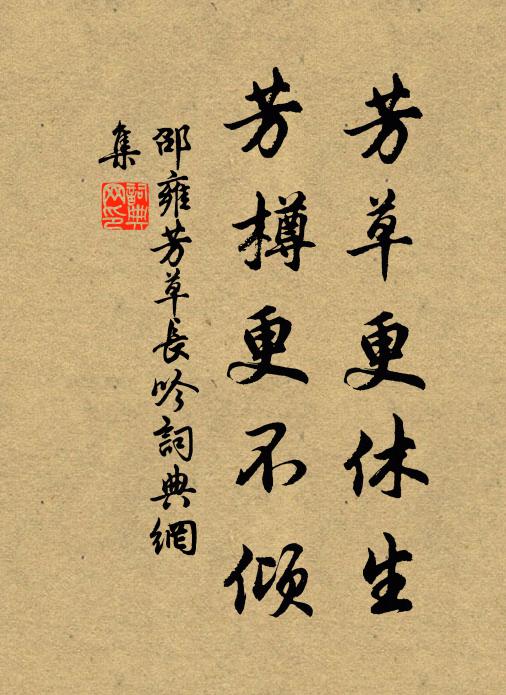 芳草更休生
芳樽更不倾
邵雍芳草長吟詞典網
集
詞典
网印